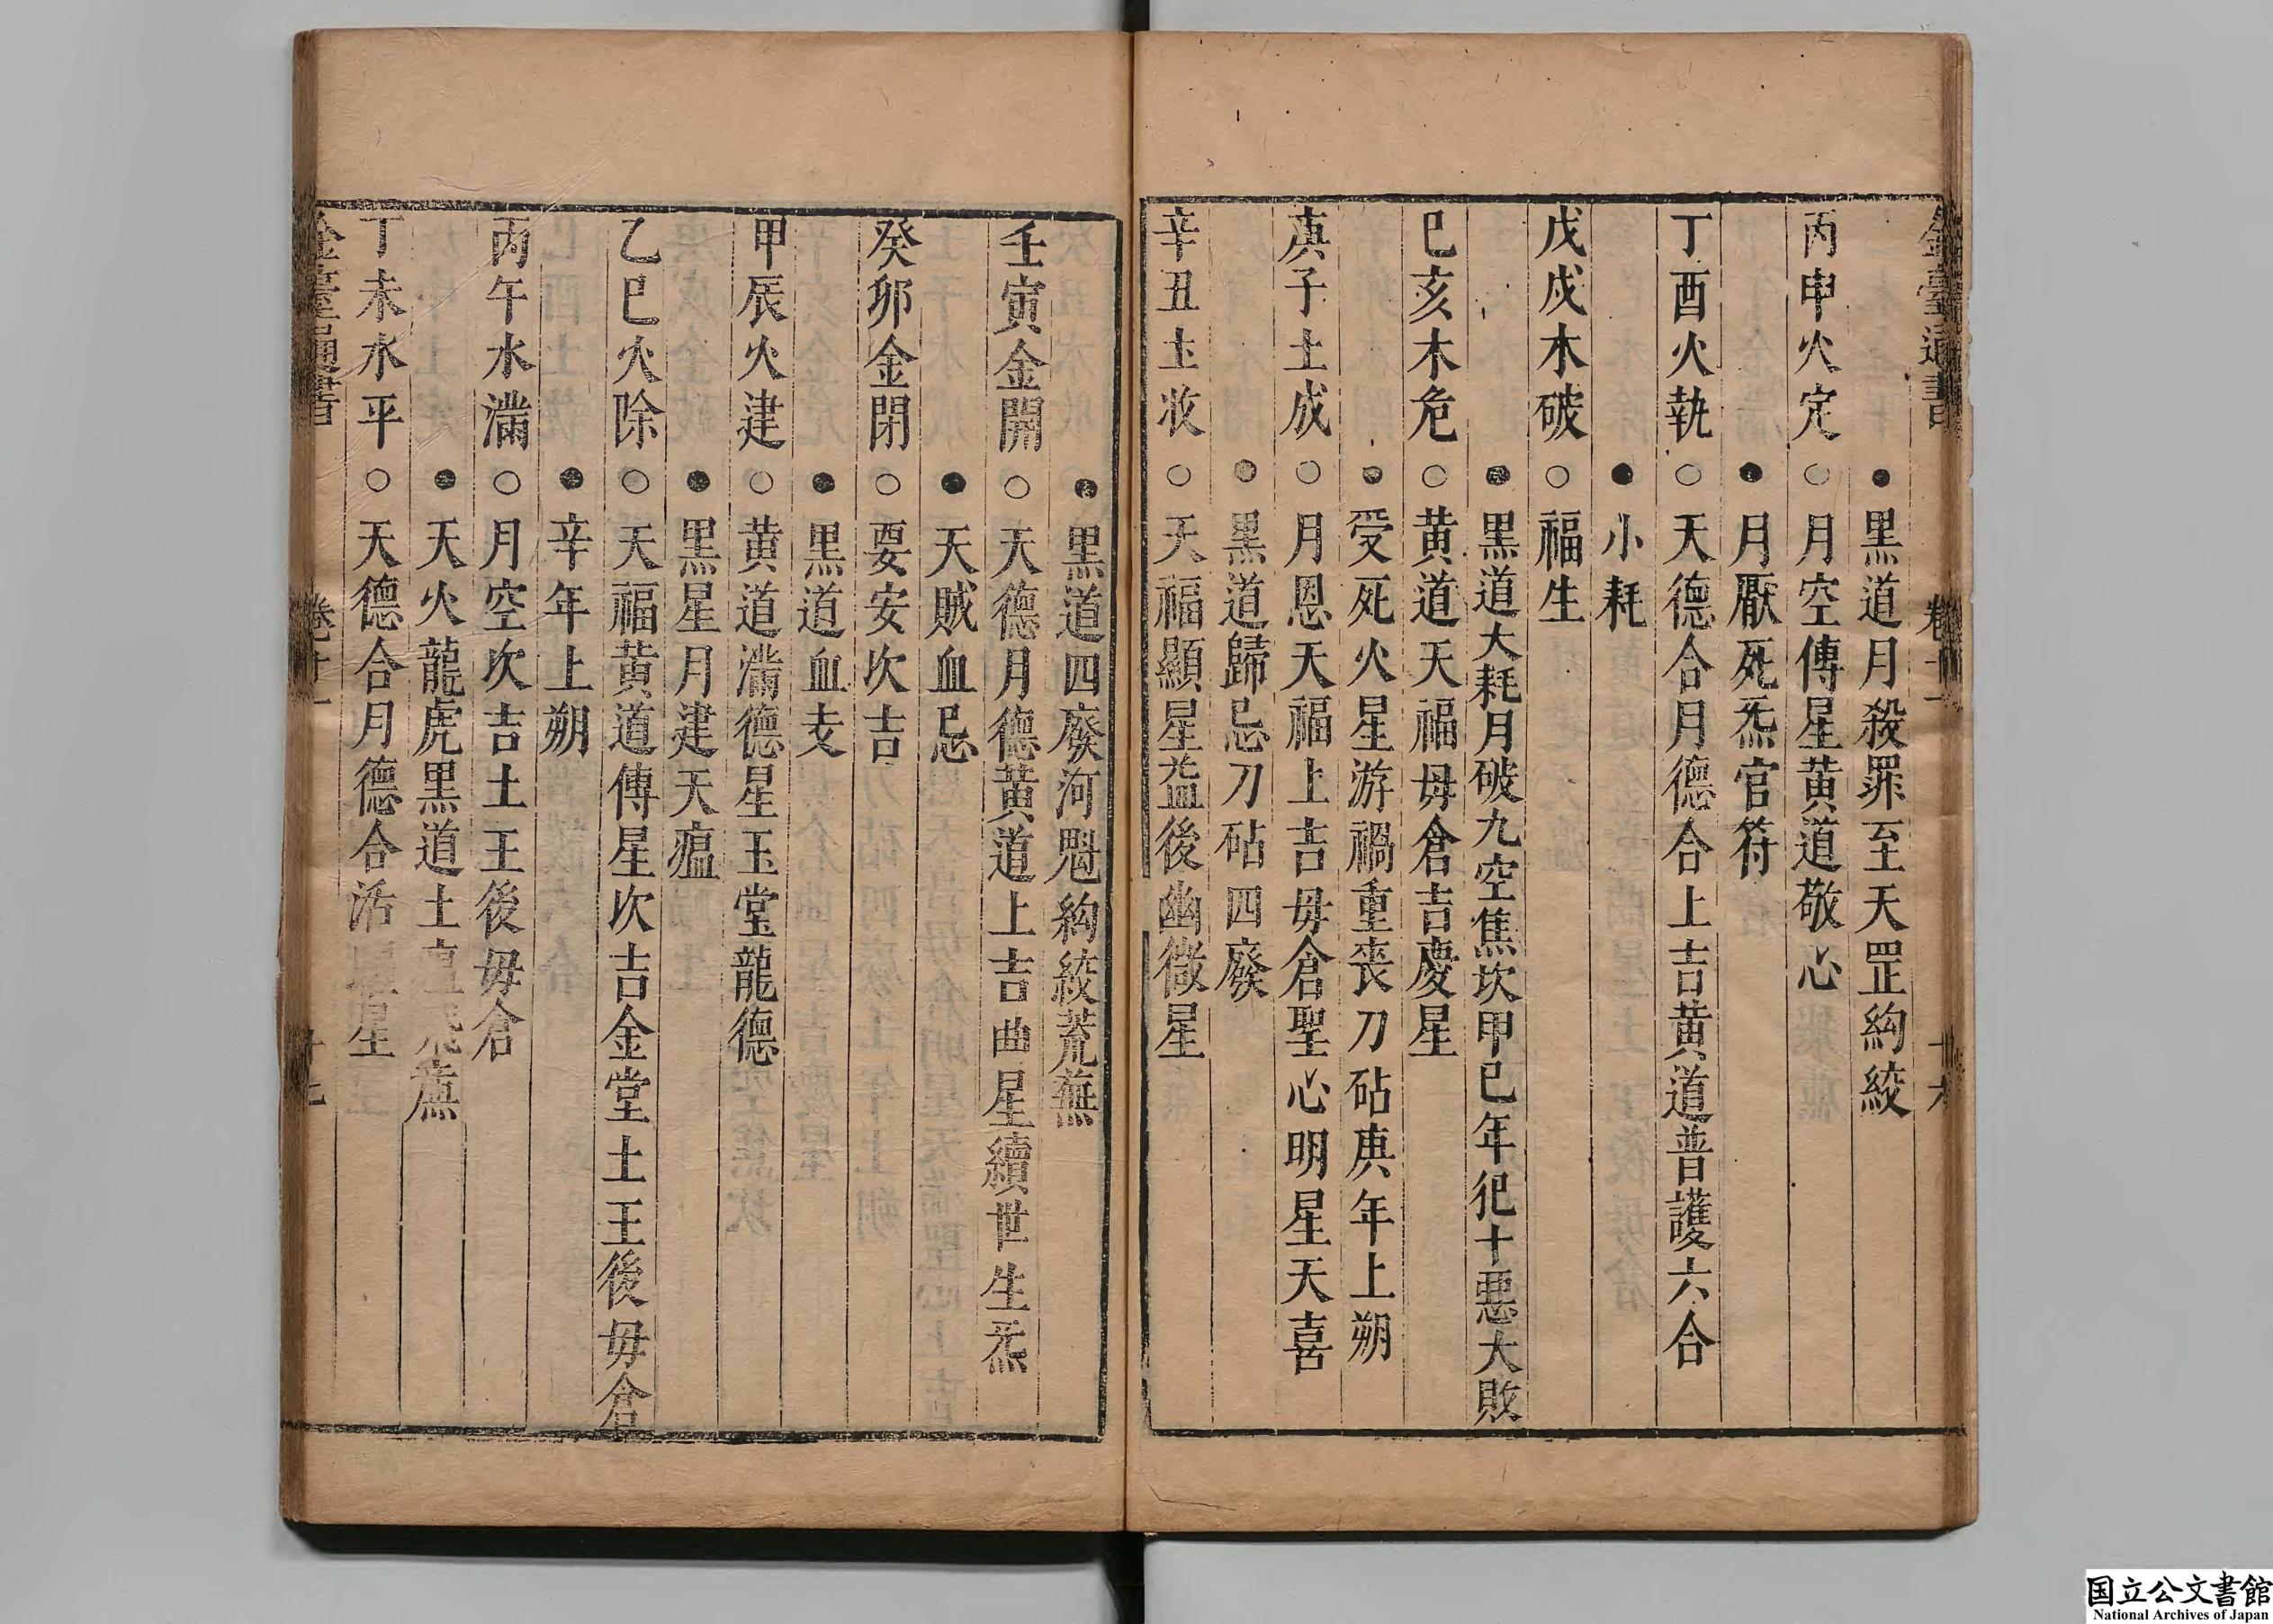 金臺通書 卷十一 十六
●黒道月殺罪至天罡絇絞
丙申火定○月空傳星黄道敬心
●月厭死炁官符
丁酉火執○天德合月德合上吉黄道普護六合
●小耗
戊戌木破○福生
●黒道大耗月破九空焦坎甲己年犯十悪大敗
己亥木危○黄道天福毋倉吉慶星
●受死火星游禍重喪刀砧庚年上朔
庚子土成○月恩天福上吉毋倉聖心明星天喜
●黒道歸忌刀砧四廢
辛丑土收○天福顯星益後幽微星
●黒道四廢河魁絇絞荒蕪
壬寅金開○天德月德黄道上吉曲星續世生炁
●天賊血忌
癸卯金閉○要安次吉
●黒道血支
甲辰火建○黄道滿德星玉堂龍德
●黒星月建天瘟
乙巳火除○天福黄道傳星次吉金堂土王後毋倉
●辛年上朔
丙午水滿○月空次吉土王後毋倉
●天火龍虎黒道土瘟荒蕪
丁未水平○天德合月德合活星
金臺通書 卷十一 十七
国立公文書館
National Archives of Japan